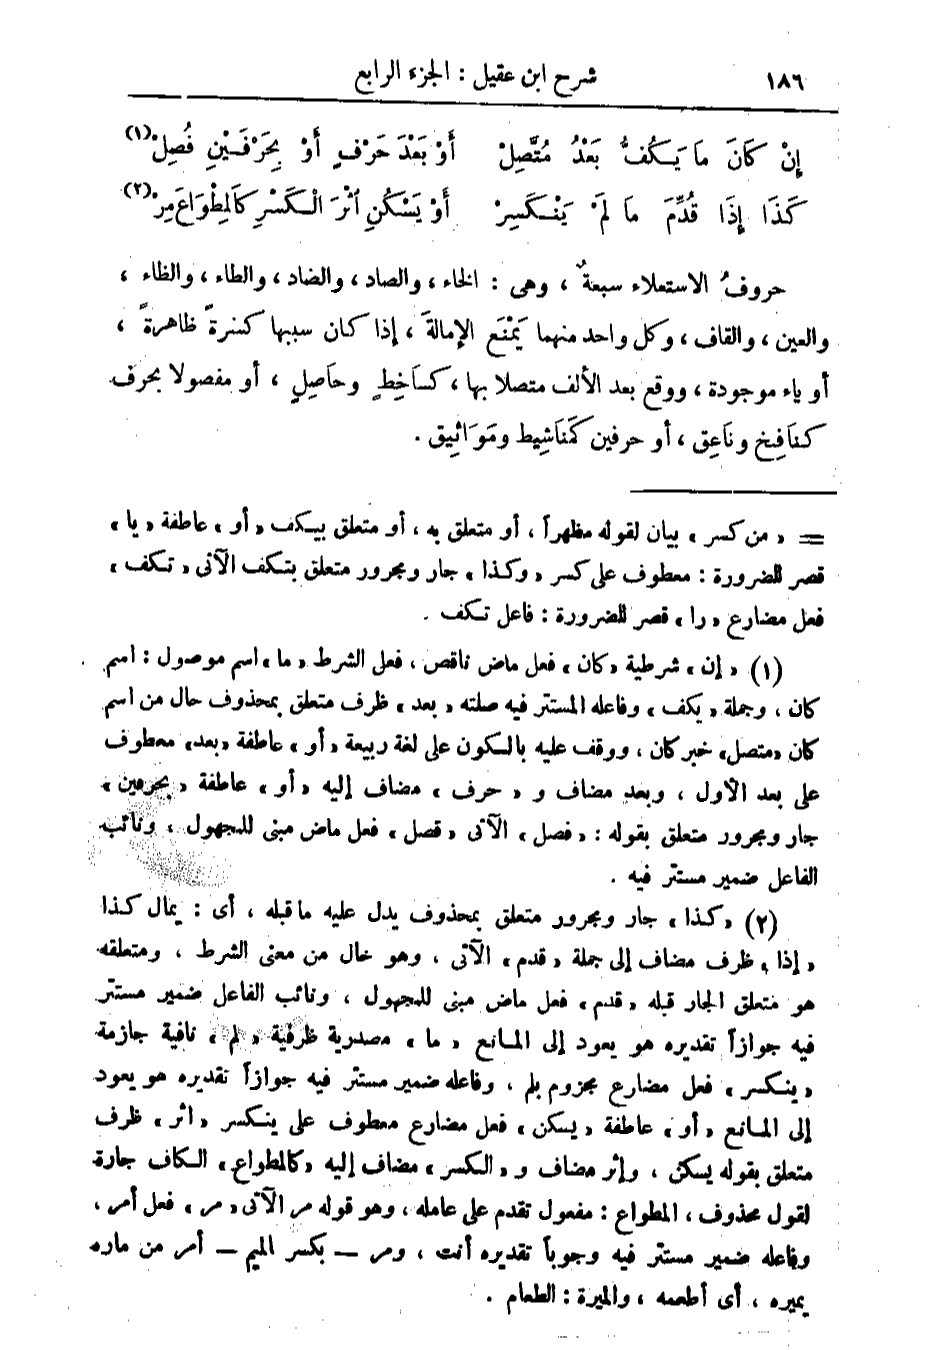 ١٨٦ شرح ابن عقيل : الجزء الرابع
إِنْ كَانَ مَا يَكُفُّ بَعْدُ مُتَّصِلْ أَوْ بَعْدَ حَرْفٍ أَوْ بِحَرْفَيْنِ فُصِلْ(١)
كَذَا إِذَا قُدِّمَ مَا لَمْ يَنْكَسِرْ أَوْ يَسْكُنِ اثْرَ الْكَسْرِ كَالْمِطْوَاعَ مِرْ(٢)
حروفُ الاستعلاء سبعةٌ ، وهى : الخاء ، والصاد ، والضاد ، والطاء ، والظاء ،
والعين ، والقاف ، وكل واحد منهما يَمْنَع الإمالةَ ، إذا كان سببها كسرةً ظاهرةً ،
أو ياء موجودة ، ووقع بعد الألف متصلا بها ، كسَاخِطٍ وحَاصِلٍ ، أو مفصولا بحرف
كنَافِخ ونَاعِق ، أو حرفين كَمَنَاشِيط ومَوَاثِيق .
= « من كسر » بيان لقوله مظهراً ، أو متعلق به ، أو متعلق بيكف « أو » عاطفة « يا »
قصر للضرورة : معطوف على كسر « وكذا » جار ومجرور متعلق بتكف الآتى « تكف »
فعل مضارع « را » قصر للضرورة : فاعل تكف .
(١) « إن » شرطية « كان » فعل ماض ناقص ، فعل الشرط « ما » اسم موصول : اسم
كان ، وجملة « يكف » وفاعله المستتر فيه صلته « بعد » ظرف متعلق بمحذوف حال من اسم
كان « متصل » خبر كان ، ووقف عليه بالسكون على لغة ربيعة « أو » عاطفة « بعد » معطوف
على بعد الأول ، وبعد مضاف و « حرف » مضاف إليه « أو » عاطفة « بحرفين »
جار ومجرور متعلق بقوله : « فصل » الآتى « فصل » فعل ماض مبنى للمجهول ، ونائب
الفاعل ضمير مستتر فيه .
(٢) « كذا » جار ومجرور متعلق بمحذوف يدل عليه ما قبله ، أى : يمال كذا
« إذا » ظرف مضاف إلى جملة « قدم » الآتى ، وهو خال من معنى الشرط ، ومتعلقه
هو متعلق الجار قبله « قدم » فعل ماض مبنى للمجهول ، ونائب الفاعل ضمير مستتر
فيه جوازاً تقديره هو يعود إلى المانع « ما » مصدرية ظرفية « لم » نافية جازمة
« ينكسر » فعل مضارع مجزوم بلم ، وفاعله ضمير مستتر فيه جوازاً تقديره هو يعود
إلى المانع « أو » عاطفة « يسكن » فعل مضارع معطوف على ينكسر « اثر » ظرف
متعلق بقوله يسكن ، وإثر مضاف و « الكسر » مضاف إليه « كالمطواع » الكاف جارة
لقول محذوف ، المطواع : مفعول تقدم على عامله ، وهو قوله مر الآتى « مر » فعل أمر ،
وفاعله ضمير مستتر فيه وجوباً تقديره أنت ، ومر — بكسر الميم — أمر من ماره
يميره ، أى أطعمه ، والميرة : الطعام .